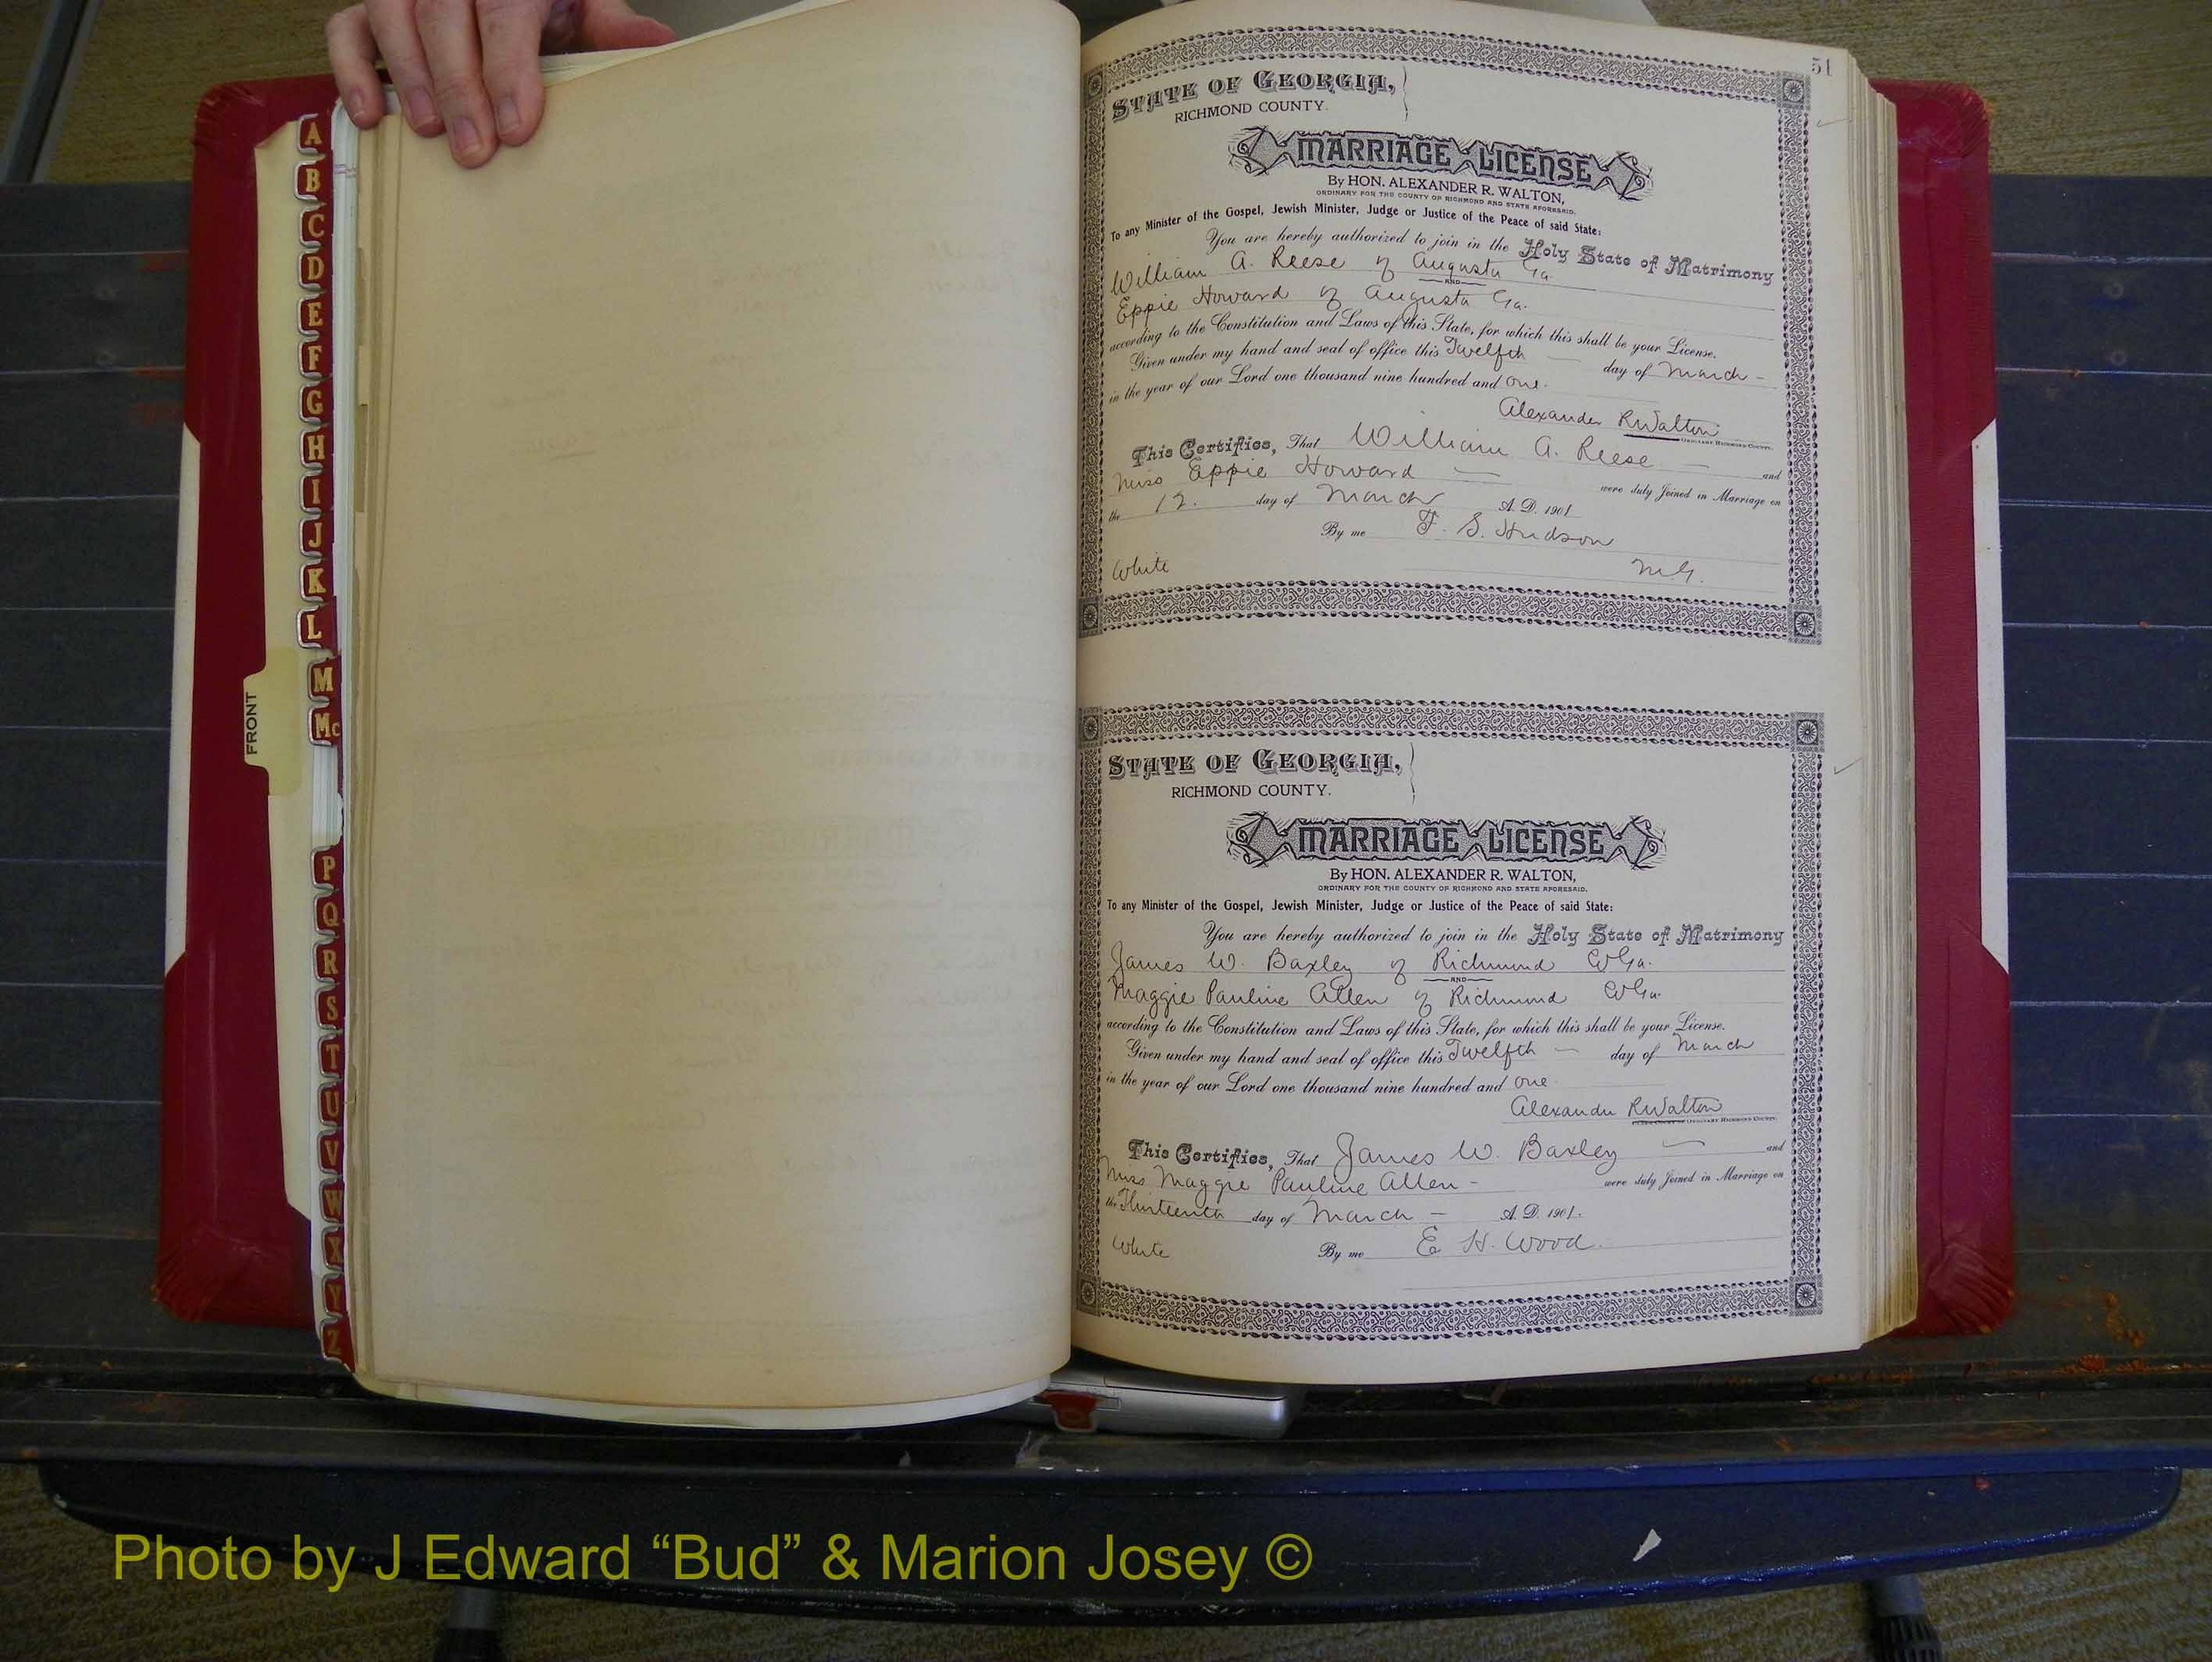 A
B
C
D
E
F
G
H
I
J
K
L
M
Mc
P
Q
R
S
T
U
V
W
X
Y
Z
FRONT
51
STATE OF GEORGIA,
RICHMOND COUNTY.
MARRIAGE LICENSE
By HON. ALEXANDER R. WALTON,
ORDINARY FOR THE COUNTY OF RICHMOND AND STATE AFORESAID.
To any Minister of the Gospel, Jewish Minister, Judge or Justice of the Peace of said State:
You are hereby authorized to join in the Holy State of Matrimony
William A. Reese of Augusta Ga.
AND
Eppie Howard of Augusta Ga.
according to the Constitution and Laws of this State, for which this shall be your License.
Given under my hand and seal of office this Twelfth day of March
in the year of our Lord one thousand nine hundred and one.
Alexander R Walton
ORDINARY RICHMOND COUNTY.
This Certifies, That William A. Reese and
Miss Eppie Howard were duly Joined in Marriage on
the 12. day of March A. D. 1901
By me F. S. Hudson
White M.G.
STATE OF GEORGIA,
RICHMOND COUNTY.
MARRIAGE LICENSE
By HON. ALEXANDER R. WALTON,
ORDINARY FOR THE COUNTY OF RICHMOND AND STATE AFORESAID.
To any Minister of the Gospel, Jewish Minister, Judge or Justice of the Peace of said State:
You are hereby authorized to join in the Holy State of Matrimony
James W. Baxley of Richmond Co Ga.
AND
Maggie Pauline Allen of Richmond Co Ga.
according to the Constitution and Laws of this State, for which this shall be your License.
Given under my hand and seal of office this Twelfth day of March
in the year of our Lord one thousand nine hundred and one
Alexander R Walton
ORDINARY RICHMOND COUNTY.
This Certifies, That James W. Baxley and
Miss Maggie Pauline Allen - were duly Joined in Marriage on
the Thirteenth day of March - A. D. 1901.
White By me E. H. Wood.
Photo by J Edward “Bud” & Marion Josey ©